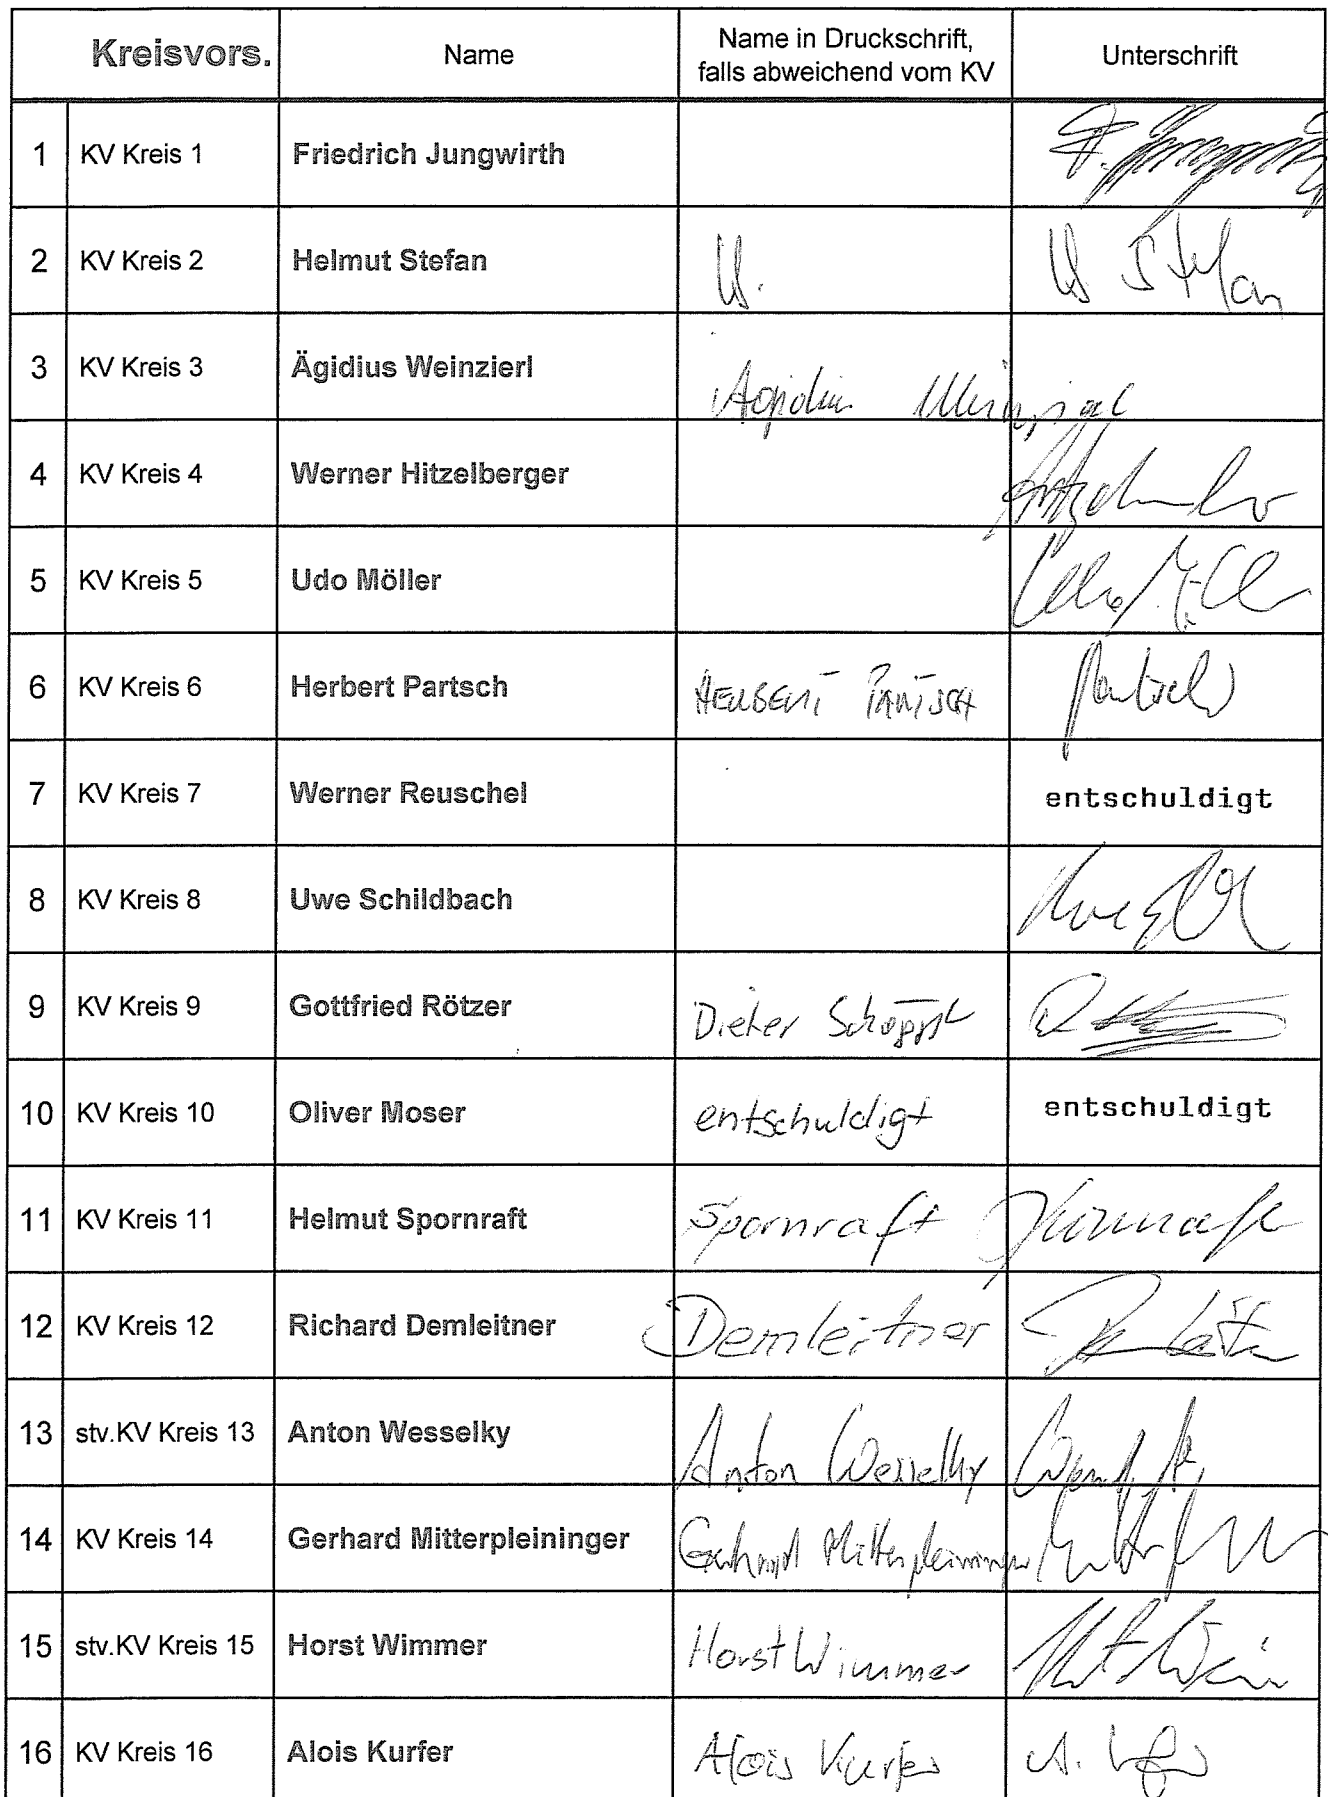 Kreisvors. Name Name in Druckschrift, falls abweichend vom KV Unterschrift
1 KV Kreis 1 Friedrich Jungwirth
2 KV Kreis 2 Helmut Stefan
3 KV Kreis 3 Ägidius Weinzierl
4 KV Kreis 4 Werner Hitzelberger
5 KV Kreis 5 Udo Möller
6 KV Kreis 6 Herbert Partsch HERBERT PARTSCH Partsch
7 KV Kreis 7 Werner Reuschel entschuldigt
8 KV Kreis 8 Uwe Schildbach
9 KV Kreis 9 Gottfried Rötzer Dieter
10 KV Kreis 10 Oliver Moser entschuldigt entschuldigt
11 KV Kreis 11 Helmut Spornraft Spornraft Spornraft
12 KV Kreis 12 Richard Demleitner Demleitner
13 stv.KV Kreis 13 Anton Wesselky Anton Wesselky
14 KV Kreis 14 Gerhard Mitterpleininger Gerhard Mitterpleininger
15 stv.KV Kreis 15 Horst Wimmer Horst Wimmer
16 KV Kreis 16 Alois Kurfer Alois Kurfer